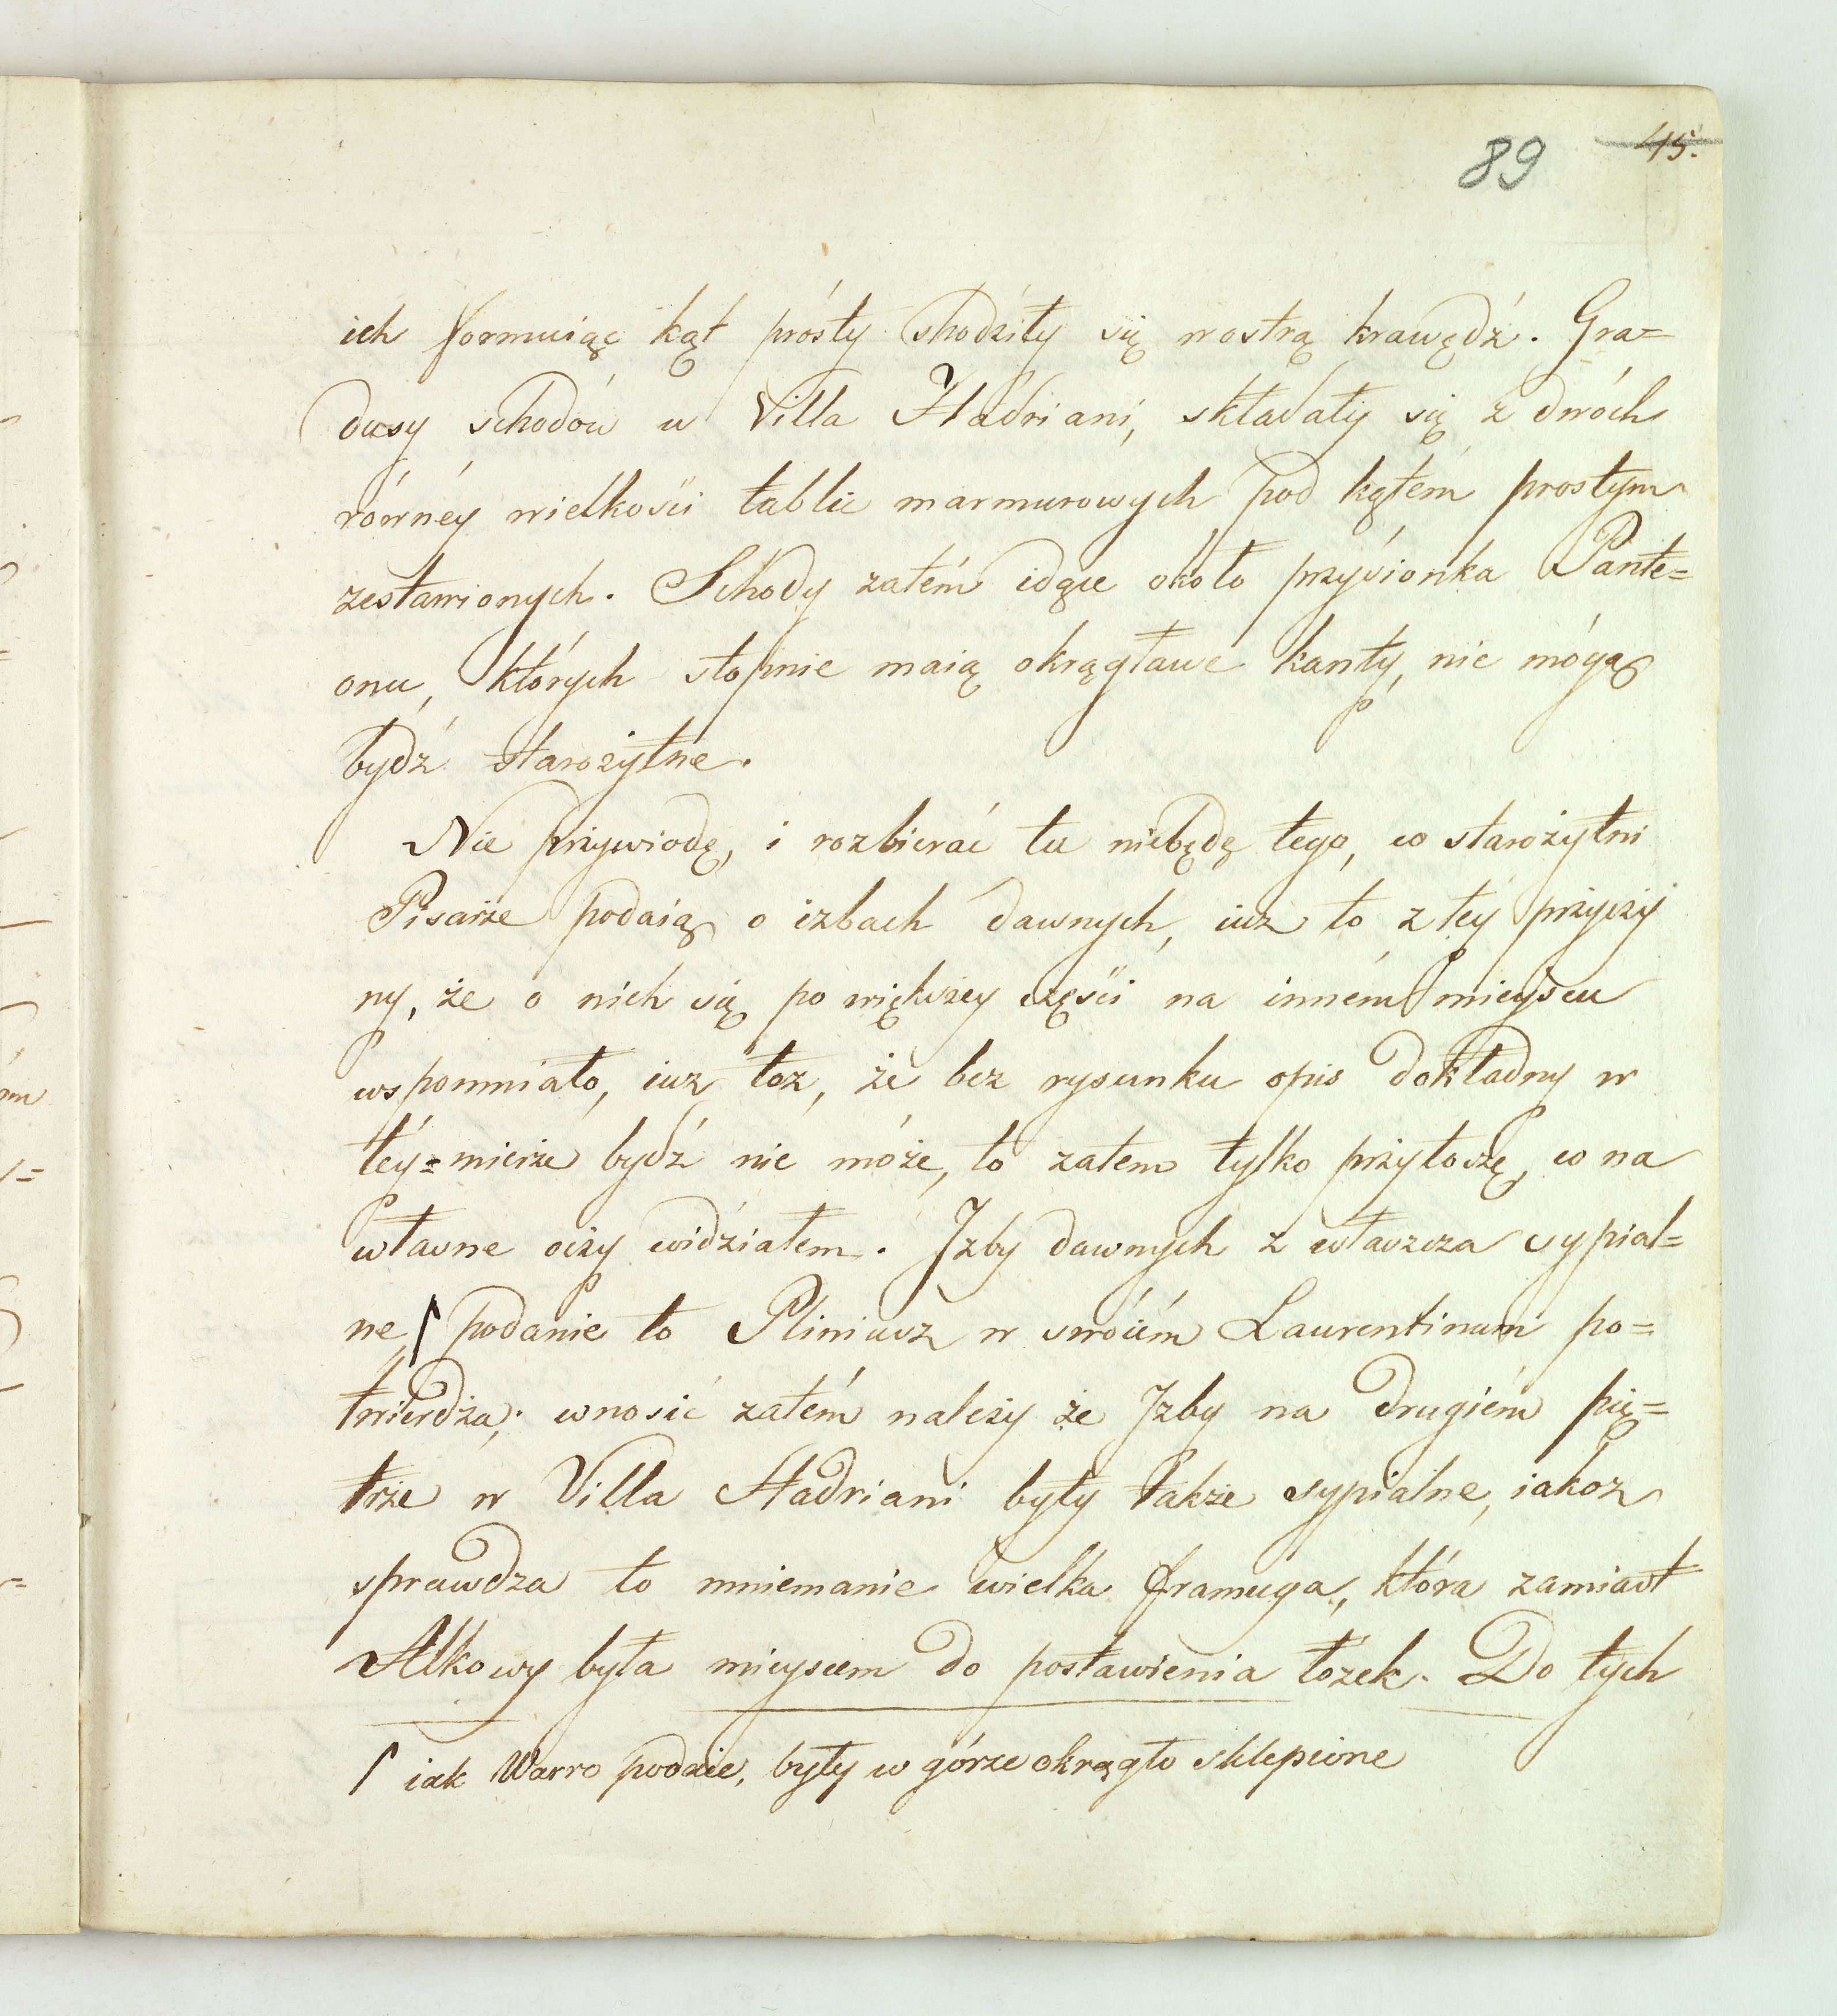 89 45.
ich formuiąc kąt prósty shodziły się w ostrą krawędź. Gra=
dusy schodów w Villa Hadriani, składały się z dwóch
równéy wielkości tablic marmurowych pod kątém prostym
zestawionych. Schody zatém idące około przysionka Pante=
onu, których stopnie maią okrągławe kanty, nie mógą
bydź starożytne.
Nie przywiodę, i rozbierać tu niebędę tego, co starożytni
Pisarze podaią o izbach dawnych, iuz to z téy przyczy
ny, że o nich się po większey części na inném mieyscu
wspomniało, iuz toz, że bez rysunku opis dokładny w
téy=mierze bydź nie może, to zatem tylko przytoczę, co na
własne oczy widziałem. Jzby dawnych z własczcza sypial=
ne, ⌈ podanie to Pliniusz w swóiém Laurentinum po=
twierdza; wnosić zatém należy że Jzby na drugiém pię=
trze w Villa Hadriani były także sypialne, iakoz
sprawdza to mniemanie wielka framuga, która zamiast
Alkowy była mieyscem do postawienia łożek. Do tych
⌈ iak Warro podaie, były w górze okrągło sklepione